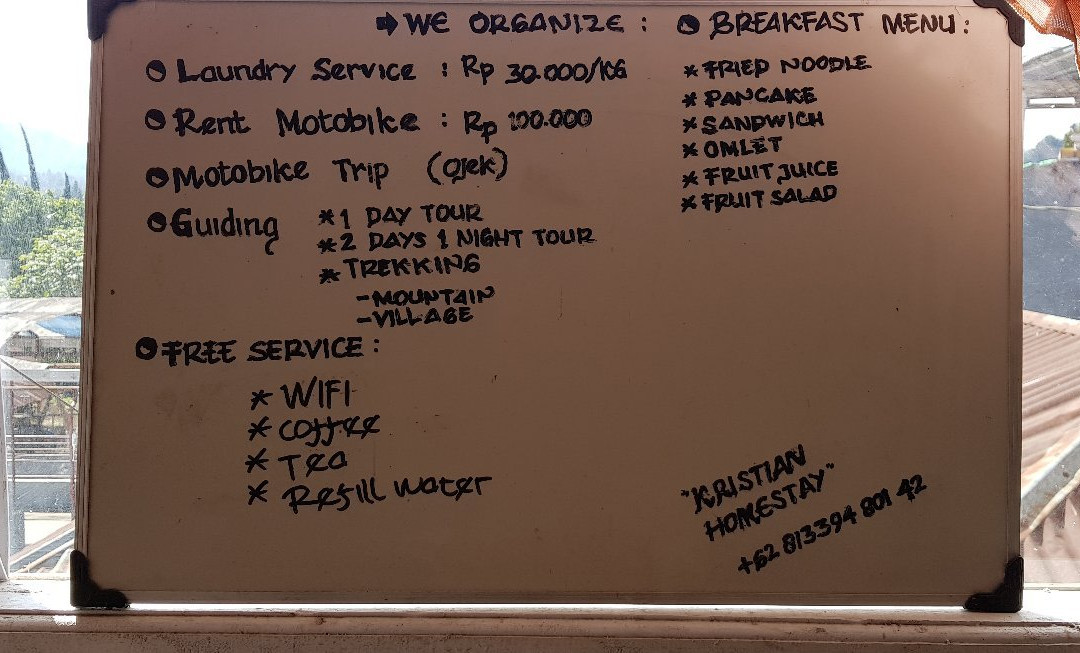 ➡ WE ORGANIZE :
Laundry Service : Rp 30.000/KG
Rent Motobike : Rp 100.000
Motobike Trip (Ojek)
Guiding * 1 DAY TOUR
* 2 DAYS 1 NIGHT TOUR
* TREKKING
- MOUNTAIN
- VILLAGE
FREE SERVICE :
* WIFI
* Coffee
* Tea
* Refill water
BREAKFAST MENU :
* FRIED NOODLE
* PANCAKE
* SANDWICH
* OMLET
* FRUIT JUICE
* FRUIT SALAD
"KRISTIAN
HOMESTAY"
+62 813394 801 42